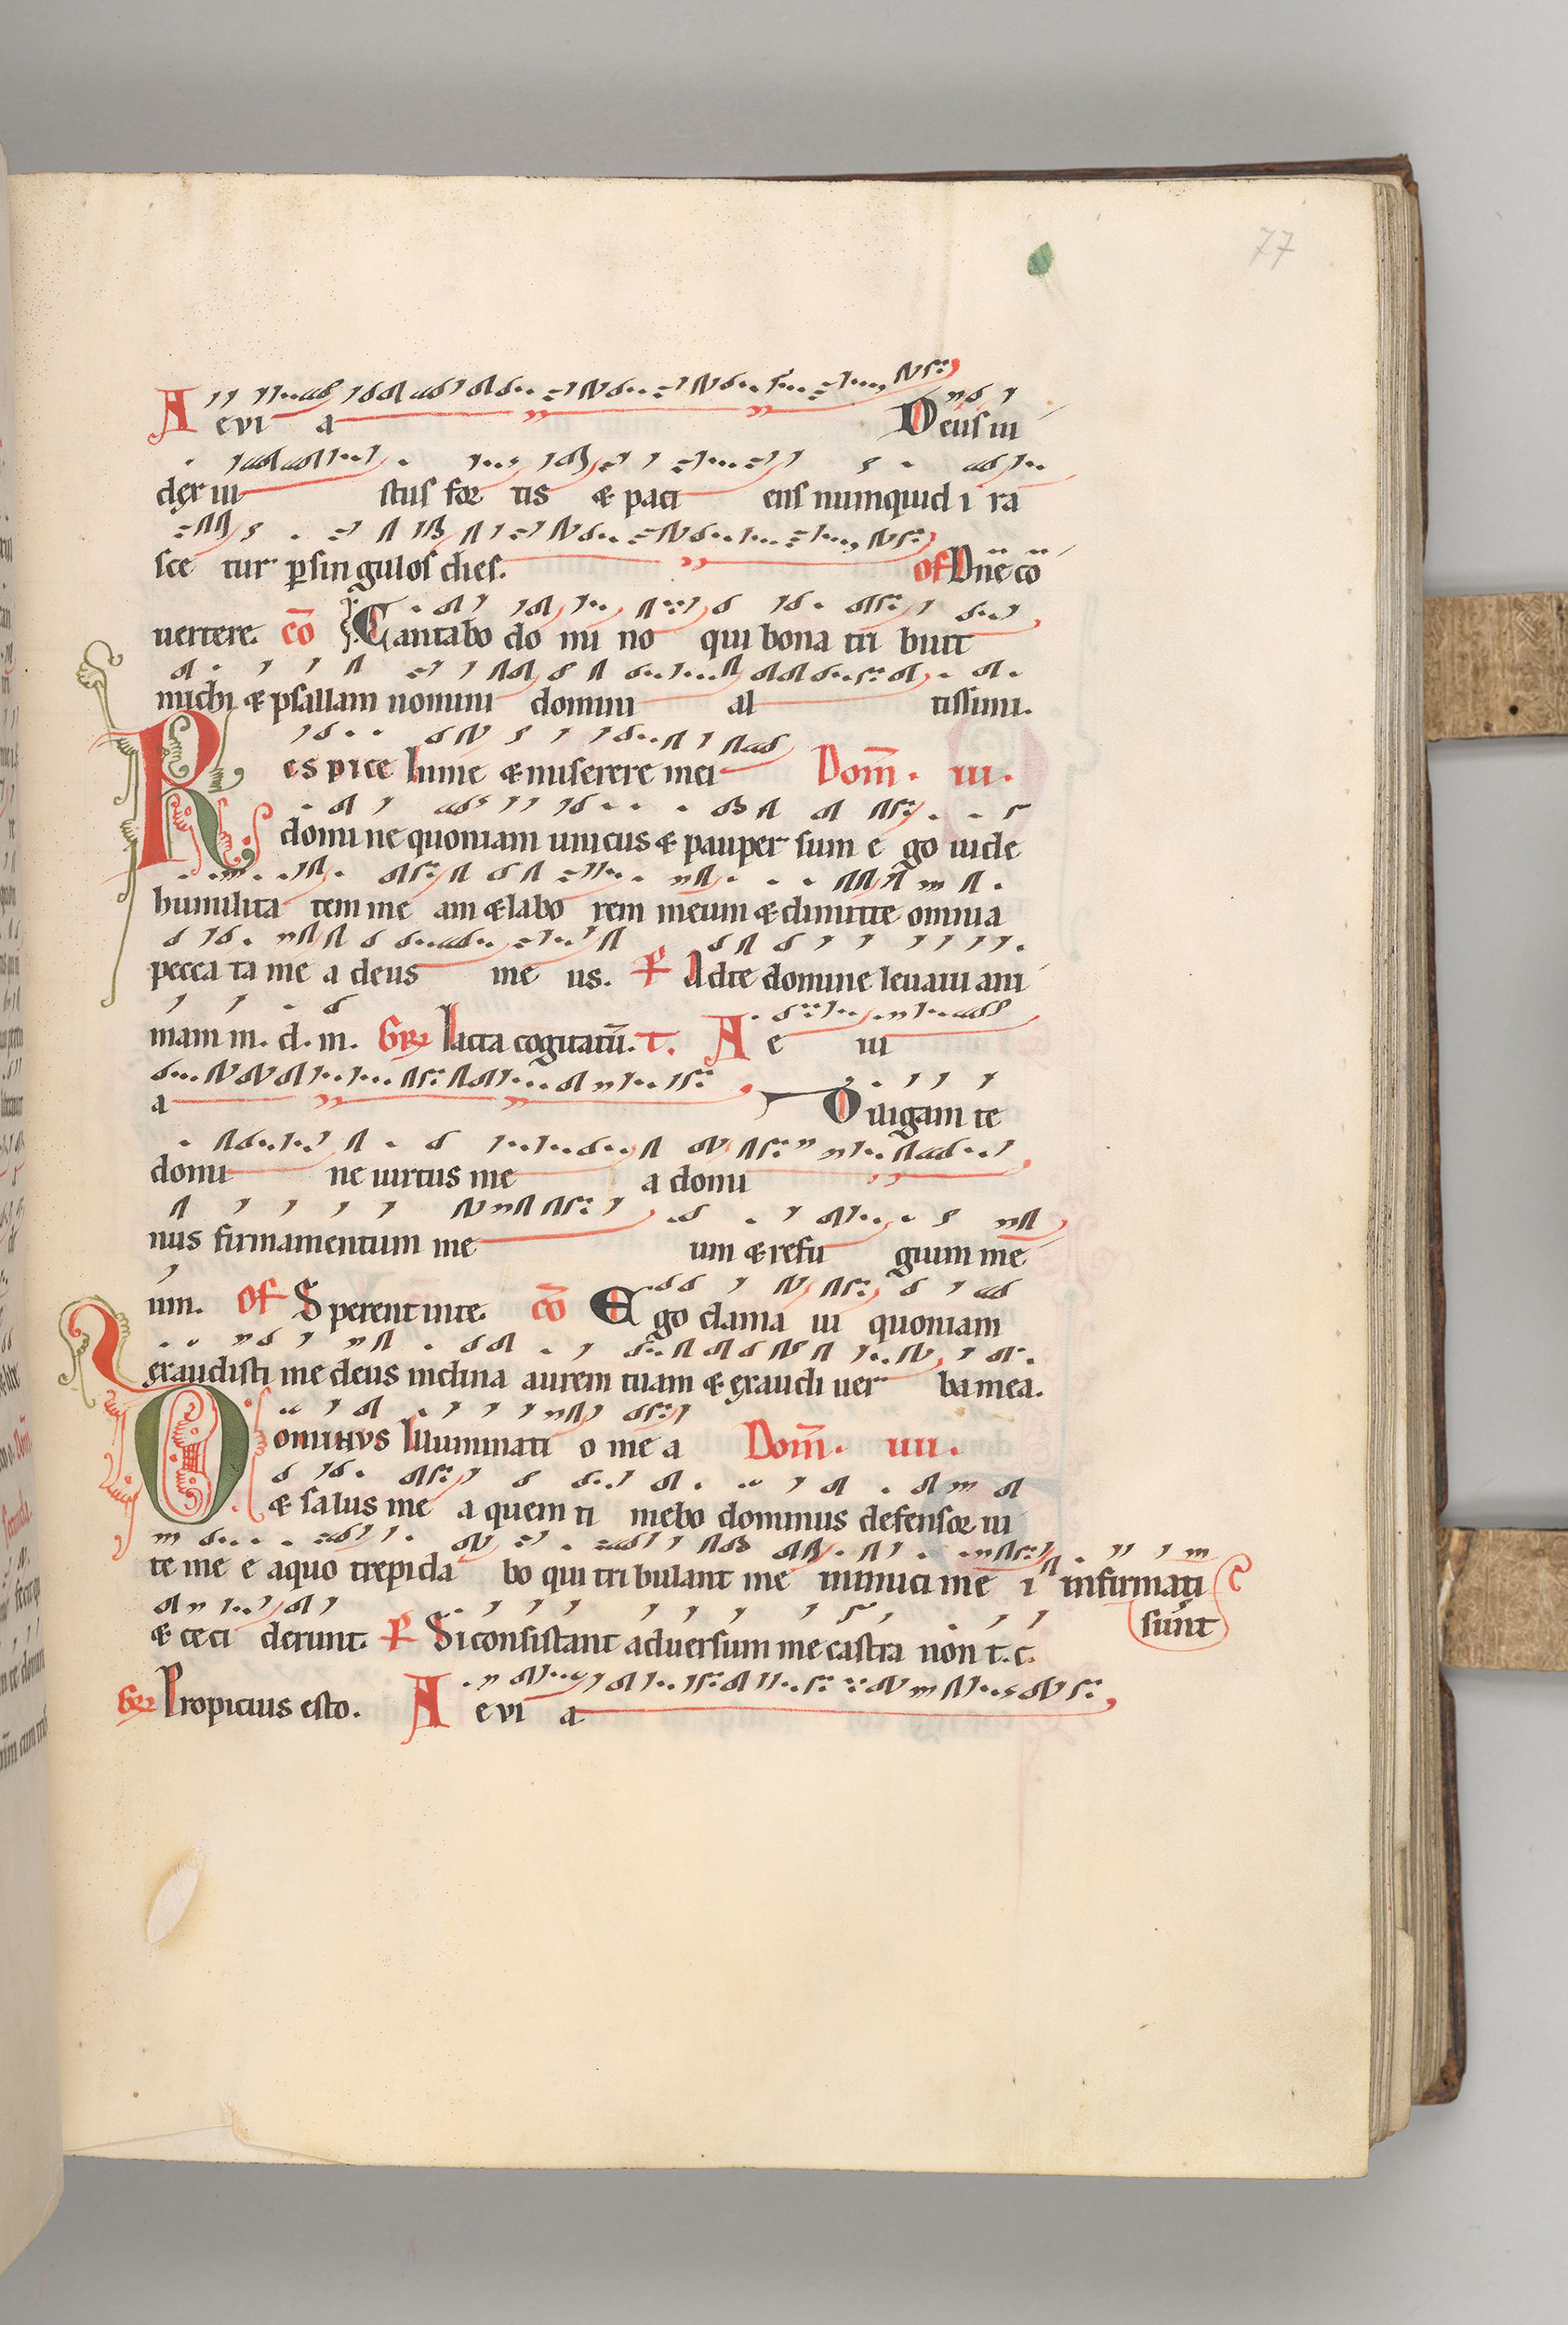 77
A evi a Deus iu
dex iu stus for tis & paci ens numquid i ra
sce tur p singulos dies. of Dn̄e cō
uertere. cō Cantabo do mi no qui bona tri buit
michi & psallam nomini domini al tissimi.
Respice in me & miserere mei Dom̄. III.
domine quoniam unicus & pauper sum e go uide
humilita tem me am & labo rem meum & dimitte omnia
pecca ta me a deus me us. Ad te domine leuaui ani
mam m. d. m. Gr Iacta cogitatū. T. A e ui
a Diligam te
domi ne uirtus me a domi
nus firmamentum me um & refu gium me
um. of Sperent in te. cō Ego clama ui quoniam
exaudisti me deus inclina aurem tuam & exaudi uer ba mea.
Dominvs Illuminati o me a Dom̄. IIII.
& salus me a quem ti mebo dominus defensor ui
te me e a quo trepida bo qui tri bulant me inimici me i infirmati
sunt
& ceci derunt. Si consistant aduersum me castra non t. c.
Gr Propicius esto. A evi a